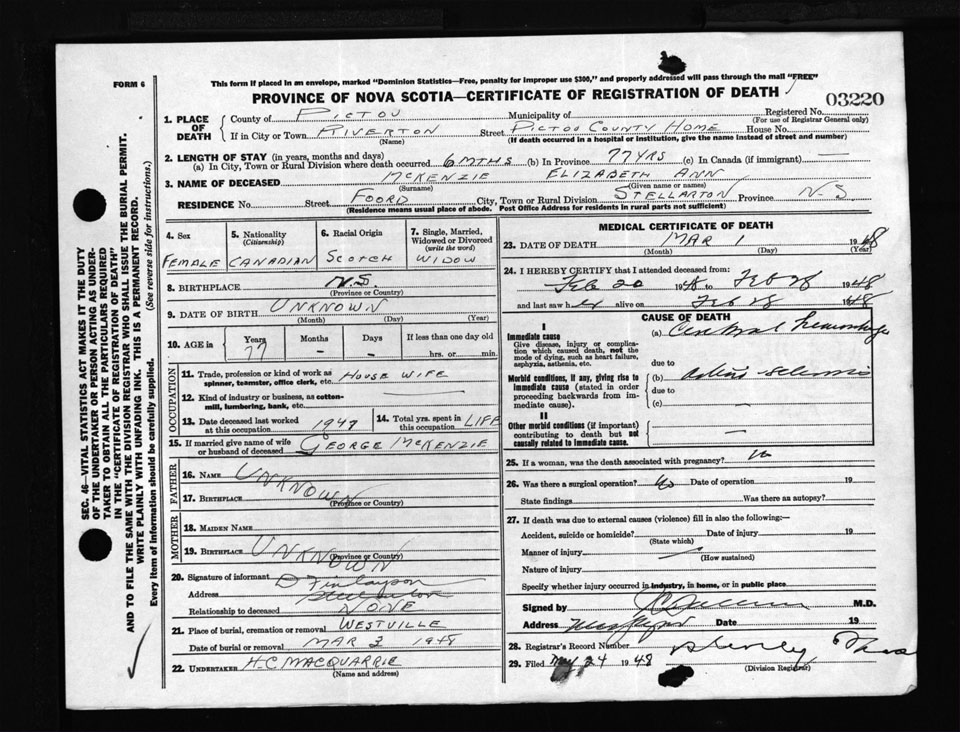 FORM 6
This form if placed in an envelope, marked "Dominion Statistics—Free, penalty for improper use $300," and properly addressed will pass through the mail "FREE"
PROVINCE OF NOVA SCOTIA—CERTIFICATE OF REGISTRATION OF DEATH
03220
1. PLACE OF DEATH
County of PICTOU Municipality of Registered No.
(For use of Registrar General only)
If in City or Town RIVERTON Street PICTOU COUNTY HOME House No.
(Name) (If death occurred in a hospital or institution, give the name instead of street and number)
2. LENGTH OF STAY (in years, months and days)
(a) In City, Town or Rural Division where death occurred 6 MTHS (b) In Province 77 YRS (c) In Canada (if immigrant) —
3. NAME OF DECEASED McKENZIE ELIZABETH ANN
(Surname) (Given name or names)
RESIDENCE No. Street FOORD City, Town or Rural Division STELLARTON Province N.S
(Residence means usual place of abode. Post Office Address for residents in rural parts not sufficient)
4. Sex FEMALE
5. Nationality (Citizenship) CANADIAN
6. Racial Origin SCOTCH
7. Single, Married, Widowed or Divorced (write the word) WIDOW
8. BIRTHPLACE N.S.
(Province or Country)
9. DATE OF BIRTH UNKNOWN
(Month) (Day) (Year)
10. AGE in Years 77 Months - Days - If less than one day old
hrs. or min.
OCCUPATION
11. Trade, profession or kind of work as spinner, teamster, office clerk, etc. HOUSE WIFE
12. Kind of industry or business, as cotton-mill, lumbering, bank, etc.
13. Date deceased last worked at this occupation 1947
14. Total yrs. spent in this occupation LIFE
15. If married give name of wife or husband of deceased GEORGE McKENZIE
FATHER
16. NAME UNKNOWN
17. BIRTHPLACE
(Province or Country)
MOTHER
18. MAIDEN NAME
19. BIRTHPLACE UNKNOWN
(Province or Country)
20. Signature of informant D Finlayson
Address Stellarton
Relationship to deceased NONE
21. Place of burial, cremation or removal WESTVILLE
Date of burial or removal MAR 3 1948
22. UNDERTAKER H.C MACQUARRIE
(Name and address)
MEDICAL CERTIFICATE OF DEATH
23. DATE OF DEATH MAR 1 1948
(Month) (Day) (Year)
24. I HEREBY CERTIFY that I attended deceased from:
Feb 20 1948 to Feb 28 1948
and last saw her alive on Feb 28 1948
CAUSE OF DEATH
I
Immediate cause
Give disease, injury or complication which caused death, not the mode of dying, such as heart failure, asphyxia, asthenia, etc.
(a) Cerebral hemorrhage
due to
Morbid conditions, if any, giving rise to immediate cause (stated in order proceeding backwards from immediate cause).
(b) Arterio-sclerosis
due to
(c) —
II
Other morbid conditions (if important) contributing to death but not causally related to immediate cause.
—
25. If a woman, was the death associated with pregnancy? No
26. Was there a surgical operation? No Date of operation 19
State findings Was there an autopsy?
27. If death was due to external causes (violence) fill in also the following:—
Accident, suicide or homicide? Date of injury 19
(State which)
Manner of injury
(How sustained)
Nature of injury
Specify whether injury occurred in industry, in home, or in public place.
Signed by M.D.
Address Date 19
28. Registrar's Record Number
29. Filed May 24 1948
(Division Registrar)
SEC. 46—VITAL STATISTICS ACT MAKES IT THE DUTY
OF THE UNDERTAKER OR PERSON ACTING AS UNDER-
TAKER TO OBTAIN ALL THE PARTICULARS REQUIRED
IN THE "CERTIFICATE OF REGISTRATION OF DEATH"
AND TO FILE THE SAME WITH THE DIVISION REGISTRAR WHO SHALL ISSUE THE BURIAL PERMIT.
WRITE PLAINLY WITH UNFADING INK. THIS IS A PERMANENT RECORD.
Every item of information should be carefully supplied. (See reverse side for instructions.)